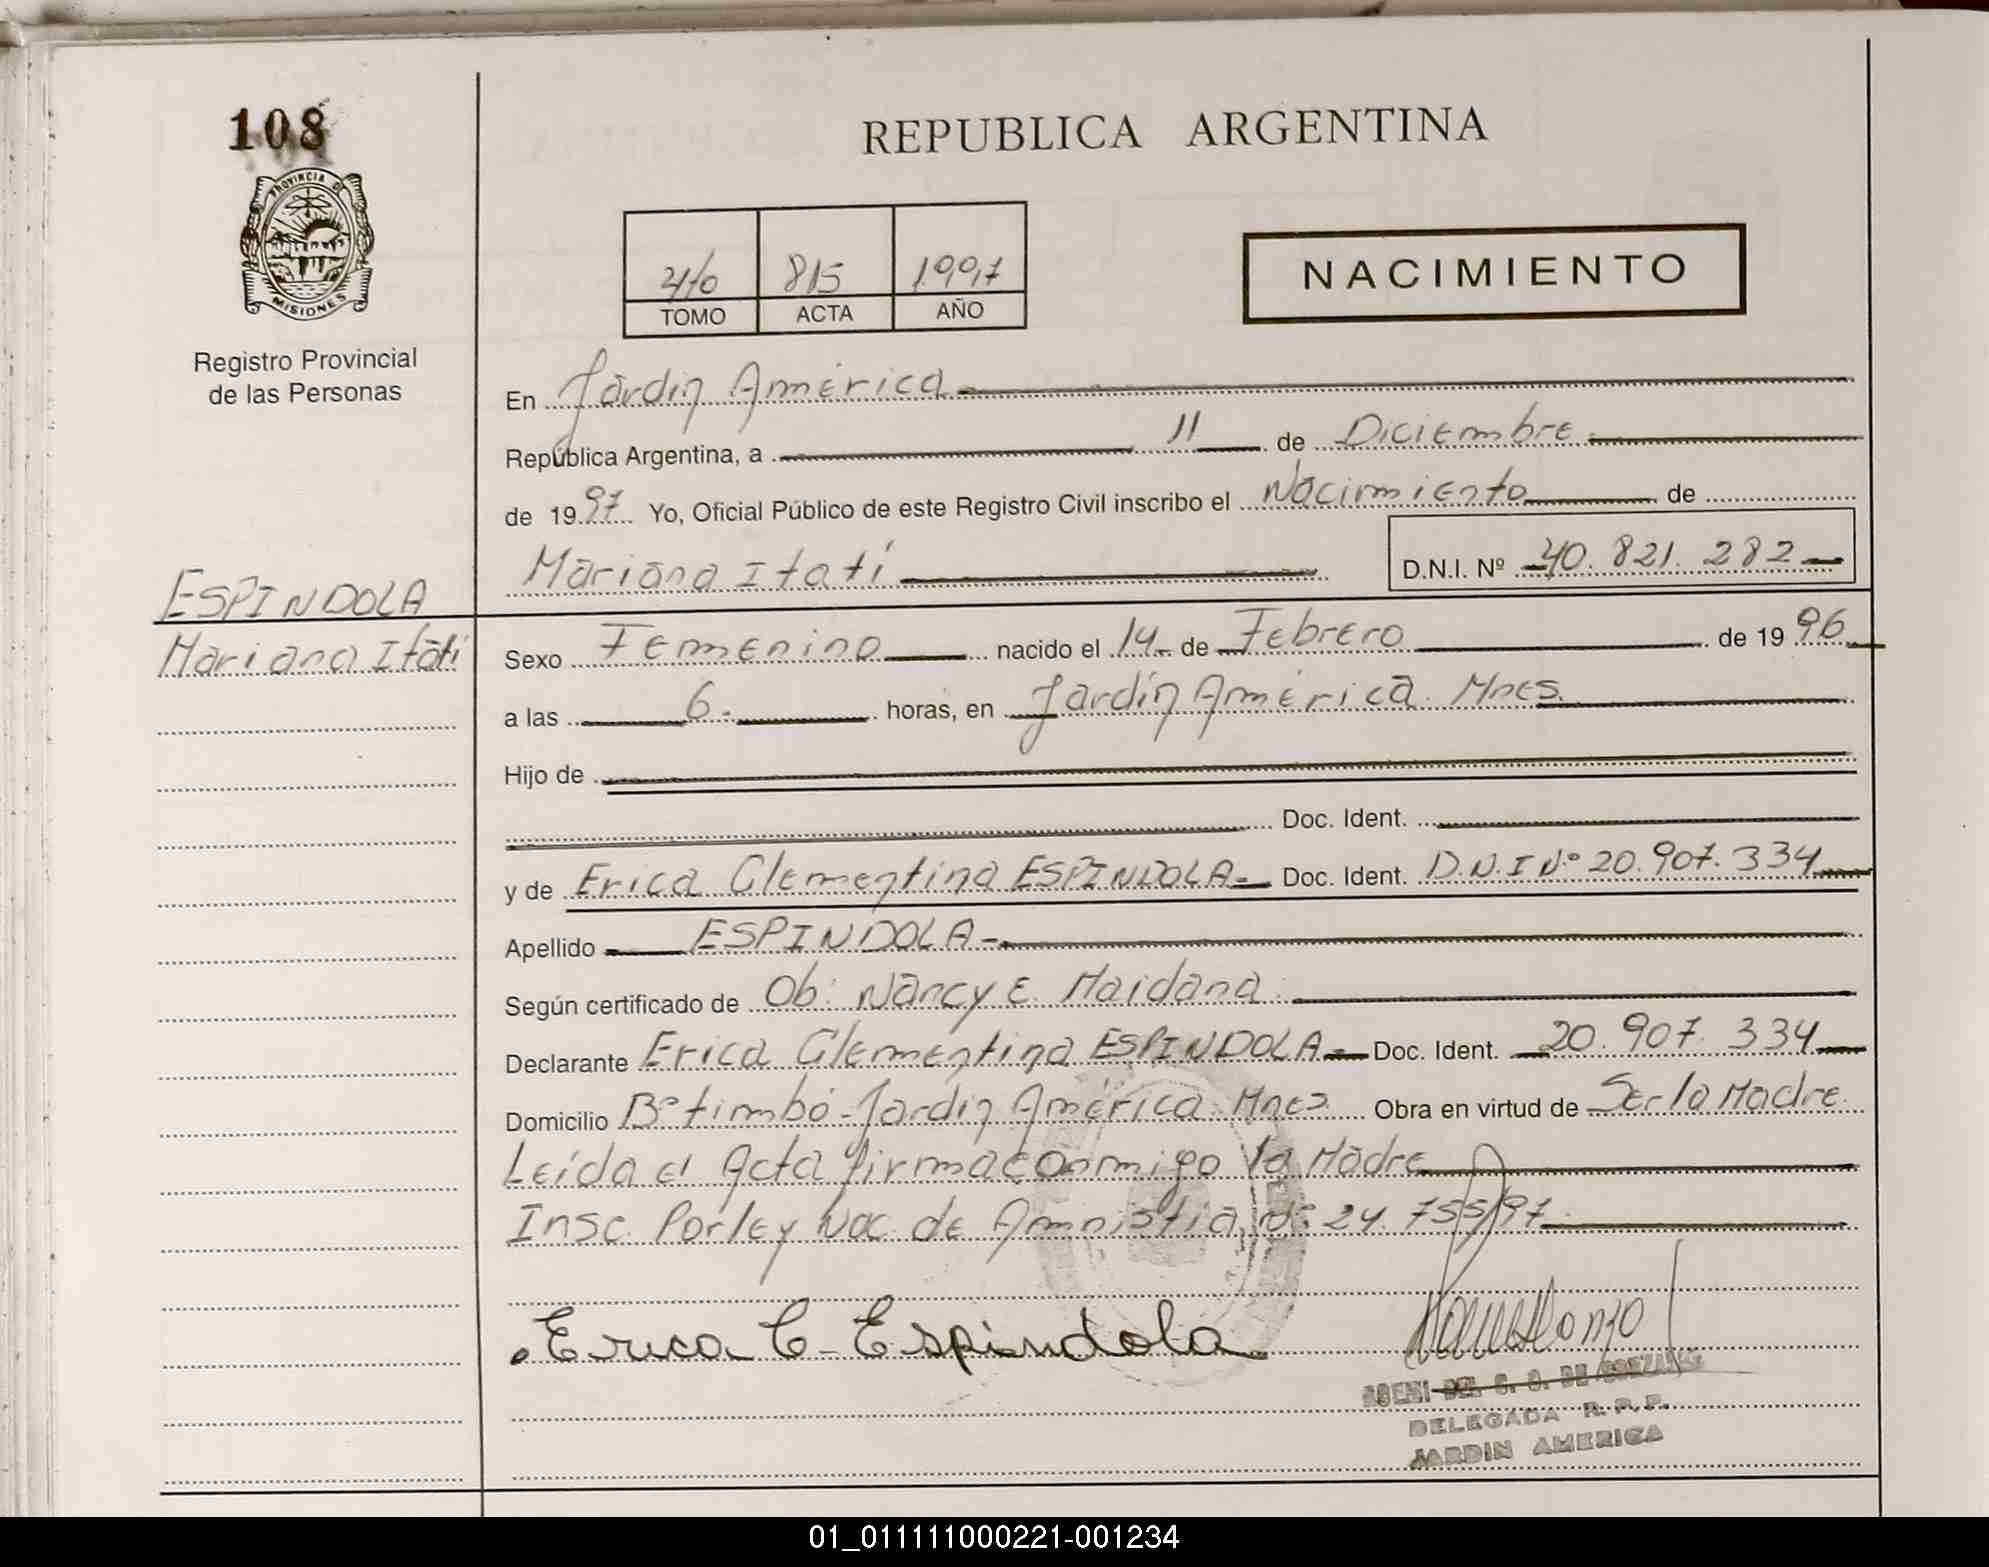 108
REPUBLICA ARGENTINA
PROVINCIA DE
MISIONES
Registro Provincial
de las Personas
815 1997
TOMO ACTA AÑO
NACIMIENTO
En Jardín América
República Argentina, a 11 de Diciembre
de 1997 Yo, Oficial Público de este Registro Civil inscribo el Nacimiento de
Mariana Itatí D.N.I. Nº 40.821.282
ESPINDOLA
Mariana Itatí
Sexo Femenino nacido el 14 de Febrero de 1996
a las 6. horas, en Jardín América. Mnes.
Hijo de
Doc. Ident.
y de Erica Clementina ESPINDOLA Doc. Ident. D.N.I Nº 20.907.334
Apellido ESPINDOLA
Según certificado de Ob: Nancy E. Maidana
Declarante Erica Clementina ESPINDOLA Doc. Ident. 20.907.334
Domicilio Bº timbó - Jardín América. Mnes Obra en virtud de Ser la Madre
Leída el Acta firma conmigo la Madre
Insc. Por ley Nac. de Amnistía Nº 24.755/97
Erica C. Espindola
DEL C. G. DE GONZALEZ
DELEGADA R.P.P.
JARDIN AMERICA
01_011111000221-001234